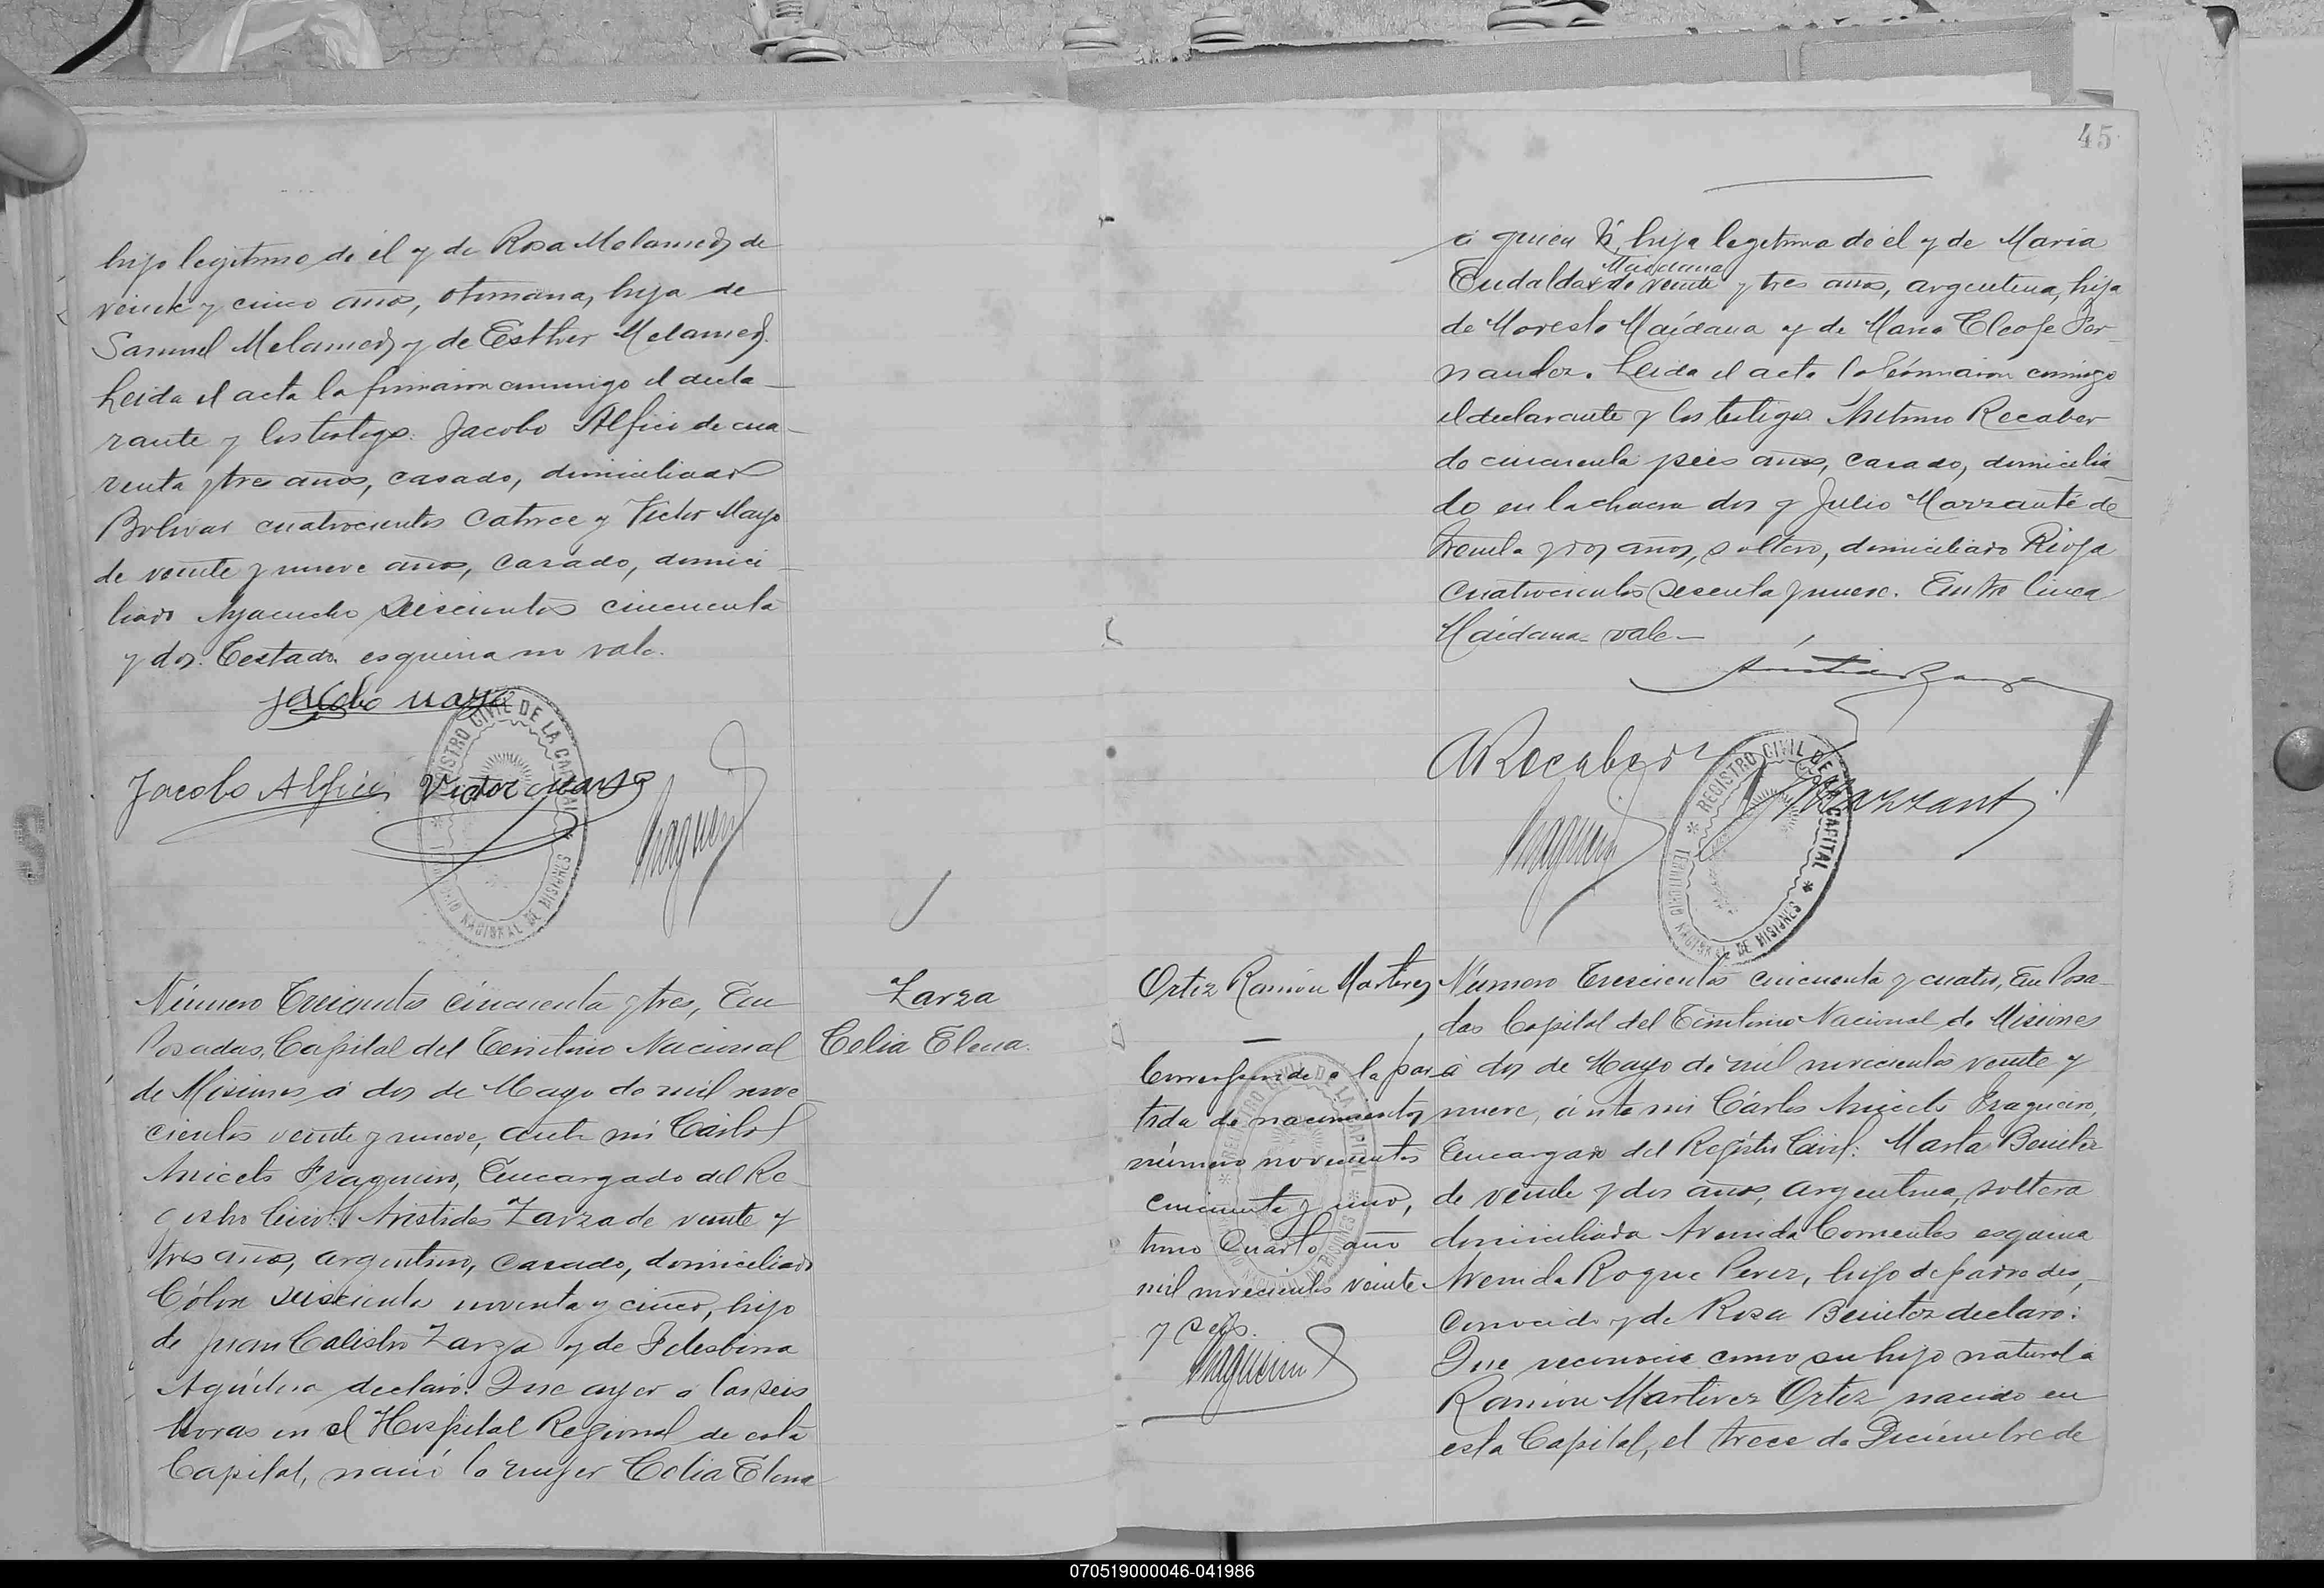 hijo legitimo de él y de Rosa Melamed, de
veinte y cinco años, otomana, hija de
Samuel Melamed y de Esther Melamed.
Leida el acta la firmaron conmigo el decla-
rante y los testigos: Jacobo Alfici de cua-
renta y tres años, casado, domiciliado
Bolivar cuatrocientos catorce y Victor Mayo
de veinte y nueve años, casado, domici-
liado Ayacucho seiscientos cincuenta
y dos. Testado esquina no vale.
Jacobo Mayo
Jacobo Alfici Victor Mayo
REGISTRO CIVIL DE LA CAPITAL
TERRITORIO NACIONAL DE MISIONES
Número Trescientos cincuenta y tres, En
Posadas, Capital del Territorio Nacional
de Misiones á dos de Mayo de mil nove-
cientos veinte y nueve, ante mi Cárlos
Aniceto Fragueiro, Encargado del Re-
gistro Civil: Aristides Zarza de veinte y
tres años, argentino, casado, domiciliado
Cólon seiscientos noventa y cinco, hijo
de Juan Calistro Zarza y de
declaró: Que ayer a las seis
horas en el Hospital Regional de esta
Capital, nació la mujer Celia Elena
Zarza
Celia Elena.
45
a quien vi, hija legitima de él y de Maria
Eudalda Maidana de veinte y tres años, argentina, hija
de Modesto Maidana y de Maria Cleofe Fer-
nandez. Leida el acta la firmaron conmigo
el declarante y los testigos Antonio Recaber
do cincuenta y seis años, casado, domicilia-
do en la chacra dos y Julio Marzante de
treinta y dos años, soltero, domiciliado Rioja
cuatrocientos sesenta y nueve. Entre linea
Maidana vale—
A Recabero
REGISTRO CIVIL DE LA CAPITAL
TERRITORIO NACIONAL DE MISIONES
Ortiz Ramón Martinez
Corresponde a la par
tida de nacimiento
número novecientos
cincuenta y uno,
tomo Cuarto año
mil novecientos veinte
y seis.
REGISTRO CIVIL DE LA CAPITAL
Número Trescientos cincuenta y cuatro, En Posa-
das Capital del Territorio Nacional de Misiones
á dos de Mayo de mil novecientos veinte y
nueve, ánte mi Cárlos Aniceto Fragueiro,
Encargado del Registro Civil: Marta Benitez
de veinte y dos años, argentina, soltera
domiciliada Avenida Corrientes esquina
Avenida Roque Perez, hijo de padre des-
conocido y de Rosa Benitez declaro:
Que reconoce como su hijo natural a
Ramón Martinez Ortiz nacido en
esta Capital, el trece de Diciembre de
070519000046-041986